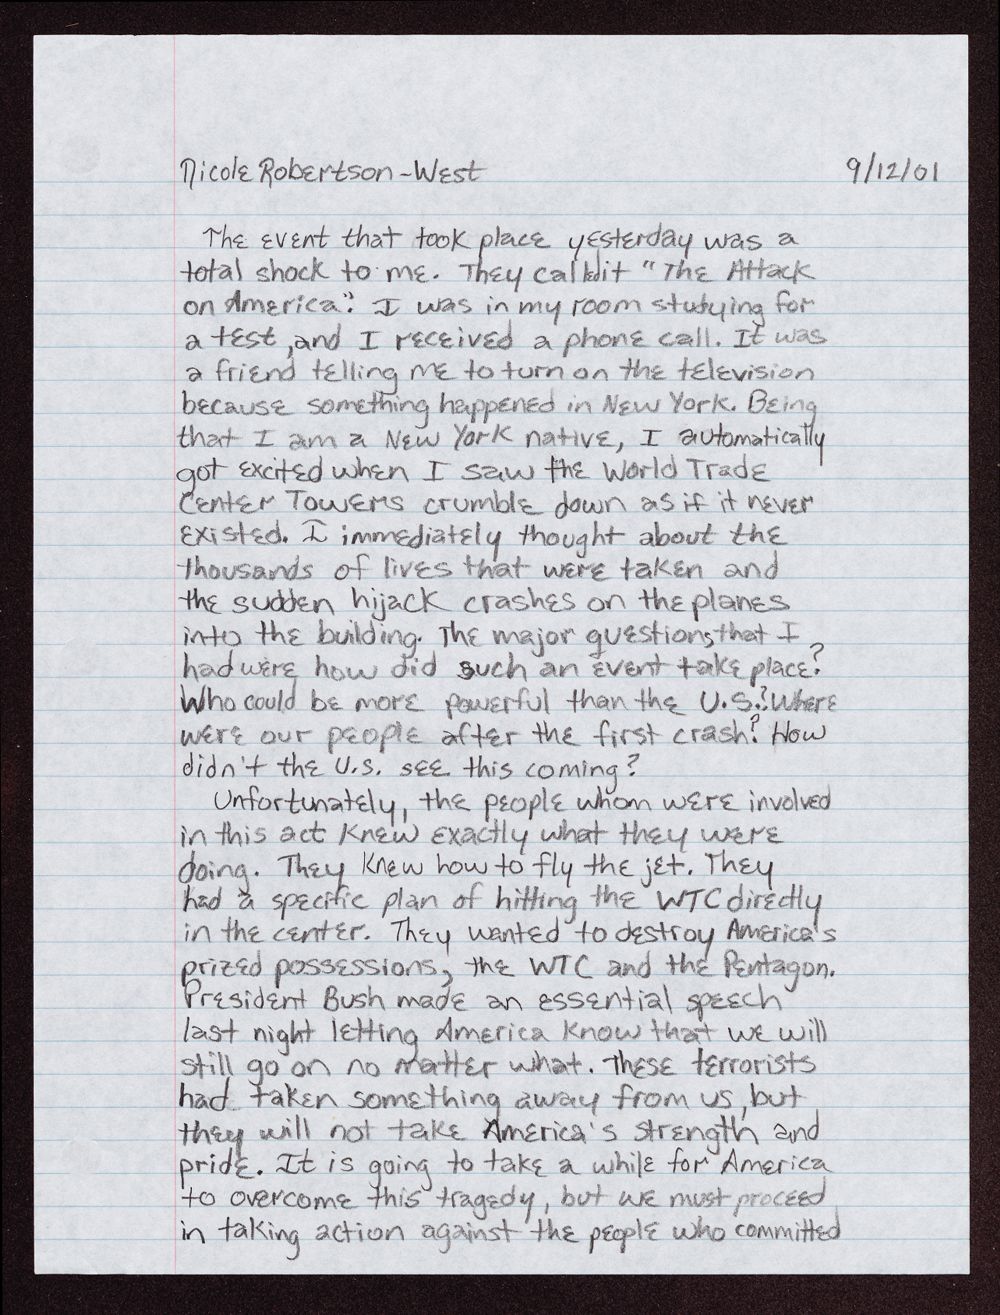 Nicole Robertson-West 9/12/01
The event that took place yesterday was a
total shock to me. They call it "The Attack
on America". I was in my room studying for
a test, and I received a phone call. It was
a friend telling me to turn on the television
because something happened in New York. Being
that I am a New York native, I automatically
got excited when I saw the World Trade
Center Towers crumble down as if it never
existed. I immediately thought about the
thousands of lives that were taken and
the sudden hijack crashes on the planes
into the building. The major questions that I
had were how did such an event take place?
Who could be more powerful than the U.S.? Where
were our people after the first crash? How
didn't the U.S. see this coming?
Unfortunately, the people whom were involved
in this act knew exactly what they were
doing. They knew how to fly the jet. They
had a specific plan of hitting the WTC directly
in the center. They wanted to destroy America's
prized possessions, the WTC and the Pentagon.
President Bush made an essential speech
last night letting America know that we will
still go on no matter what. These terrorists
had taken something away from us, but
they will not take America's strength and
pride. It is going to take a while for America
to overcome this tragedy, but we must proceed
in taking action against the people who committed